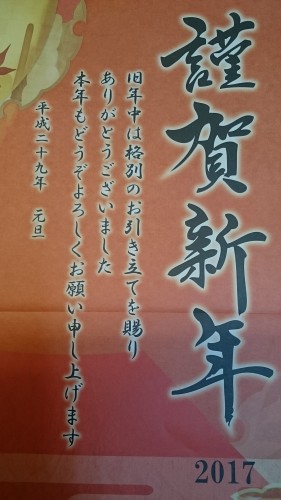 謹賀新年
旧年中は格別のお引き立てを賜り
ありがとうございました
本年もどうぞよろしくお願い申し上げます
平成二十九年　元旦
2017